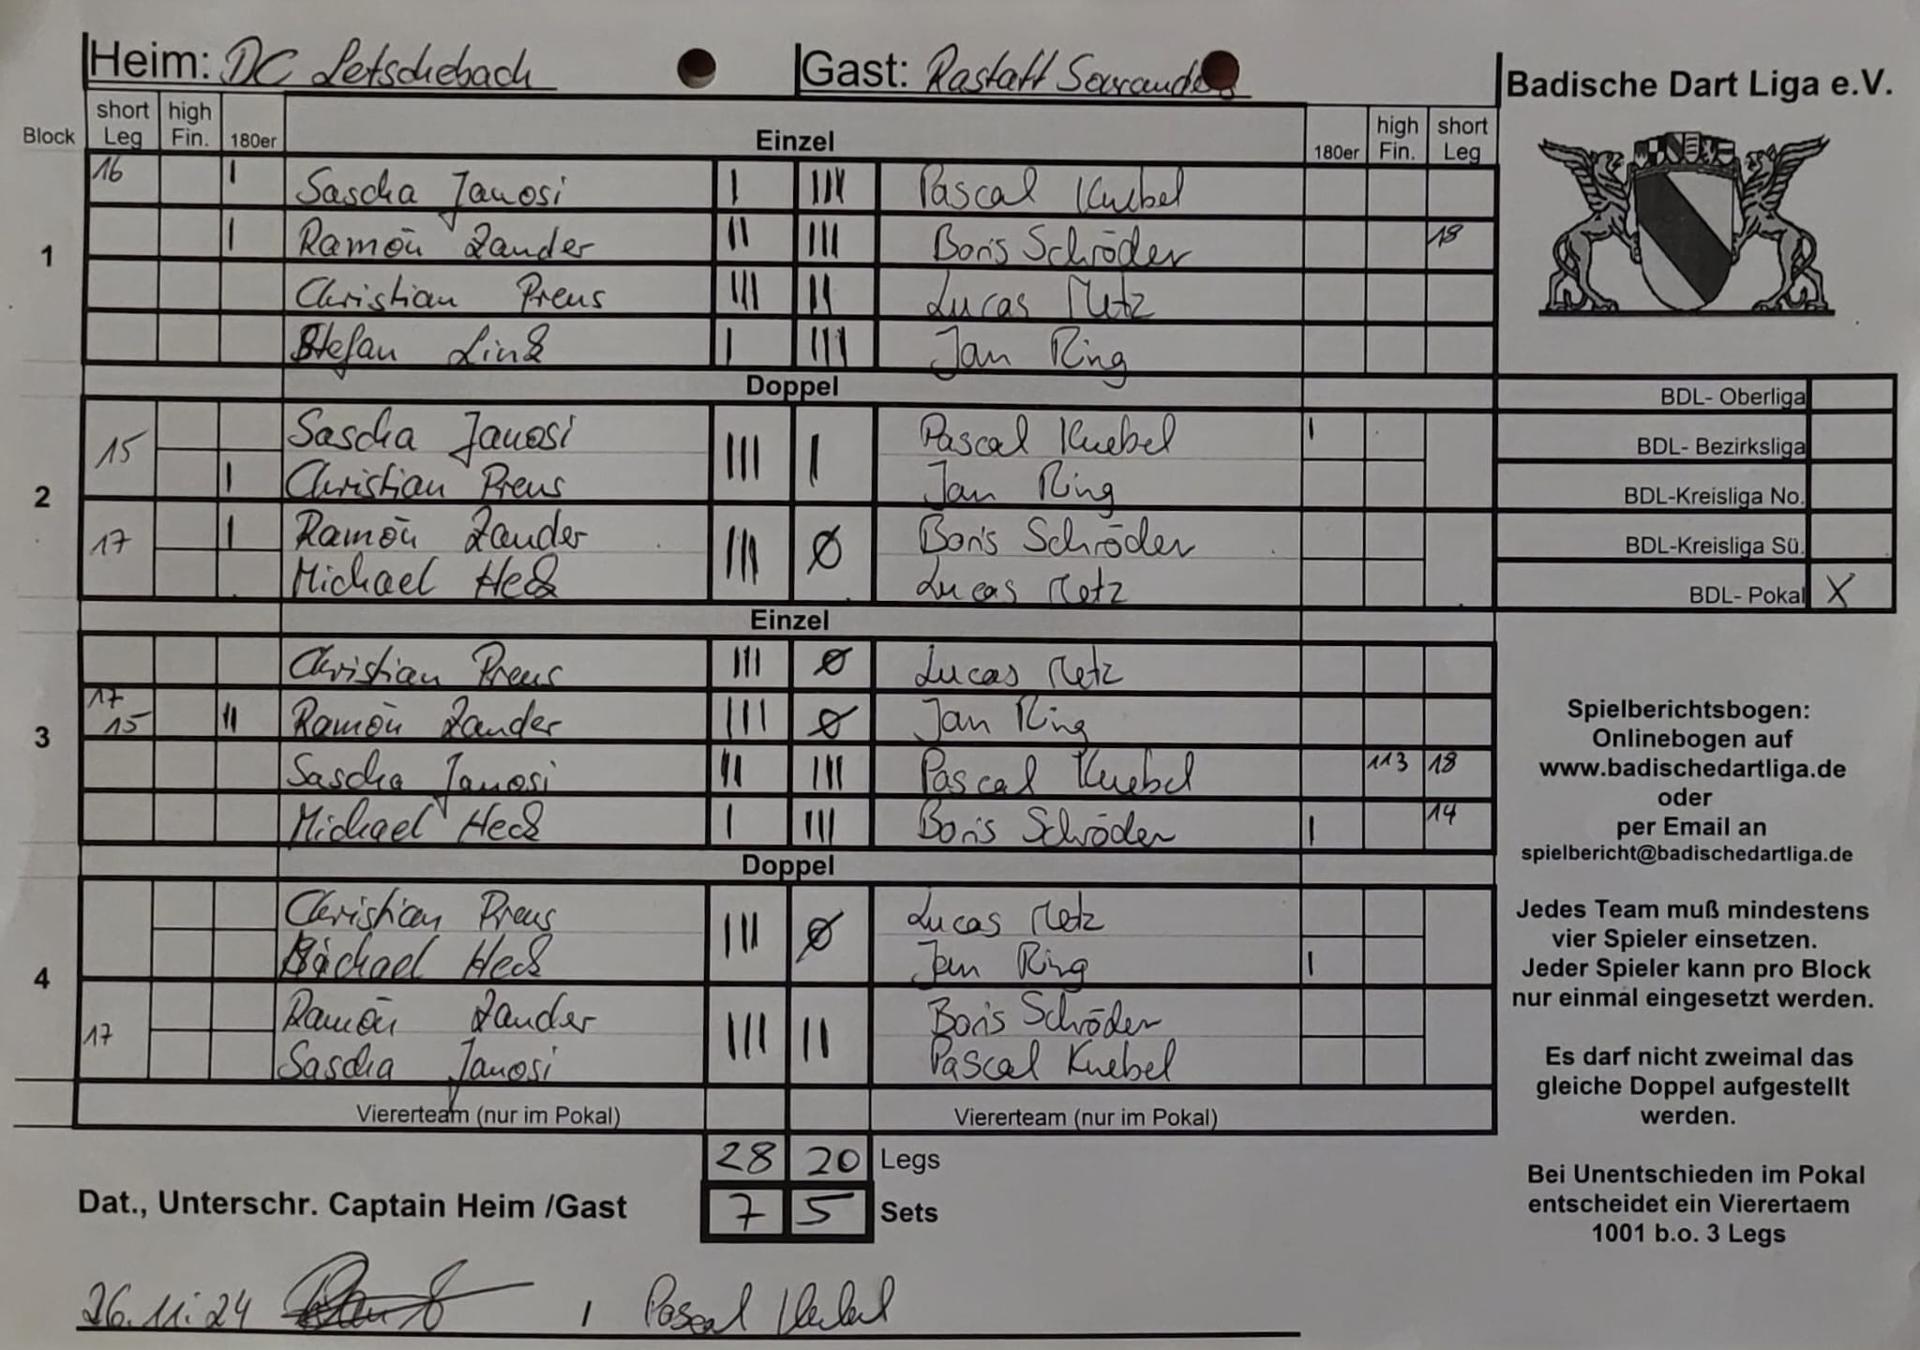 Heim: DC Letschebach Gast: Rastatt Badische Dart Liga e.V.
Block short Leg high Fin. 180er Einzel 180er high Fin. short Leg
1
16 I Sascha Janosi I III Pascal Knebel
I Ramòn Zander II III Boris Schröder 18
Christian Preus III II Lucas Metz
Stefan Link I III Jan Ring
Doppel
2
15 Sascha Janosi III I Pascal Knebel I
I Christian Preus Jan Ring
17 I Ramòn Zander III Ø Boris Schröder
Michael Heck Lucas Metz
BDL- Oberliga
BDL- Bezirksliga
BDL-Kreisliga No.
BDL-Kreisliga Sü.
BDL- Pokal X
Einzel
3
Christian Preus III Ø Lucas Metz
17 15 II Ramòn Zander III Ø Jan Ring
Sascha Janosi II III Pascal Knebel 113 18
Michael Heck I III Boris Schröder I 14
Doppel
4
Christian Preus III Ø Lucas Metz
Michael Heck Jan Ring I
17 Ramòn Zander III II Boris Schröder
Sascha Janosi Pascal Knebel
Viererteam (nur im Pokal) Viererteam (nur im Pokal)
28 20 Legs
7 5 Sets
Dat., Unterschr. Captain Heim /Gast
26.11.24 / Pascal Knebel
Spielberichtsbogen:
Onlinebogen auf
www.badischedartliga.de
oder
per Email an
spielbericht@badischedartliga.de
Jedes Team muß mindestens
vier Spieler einsetzen.
Jeder Spieler kann pro Block
nur einmal eingesetzt werden.
Es darf nicht zweimal das
gleiche Doppel aufgestellt
werden.
Bei Unentschieden im Pokal
entscheidet ein Vierertaem
1001 b.o. 3 Legs